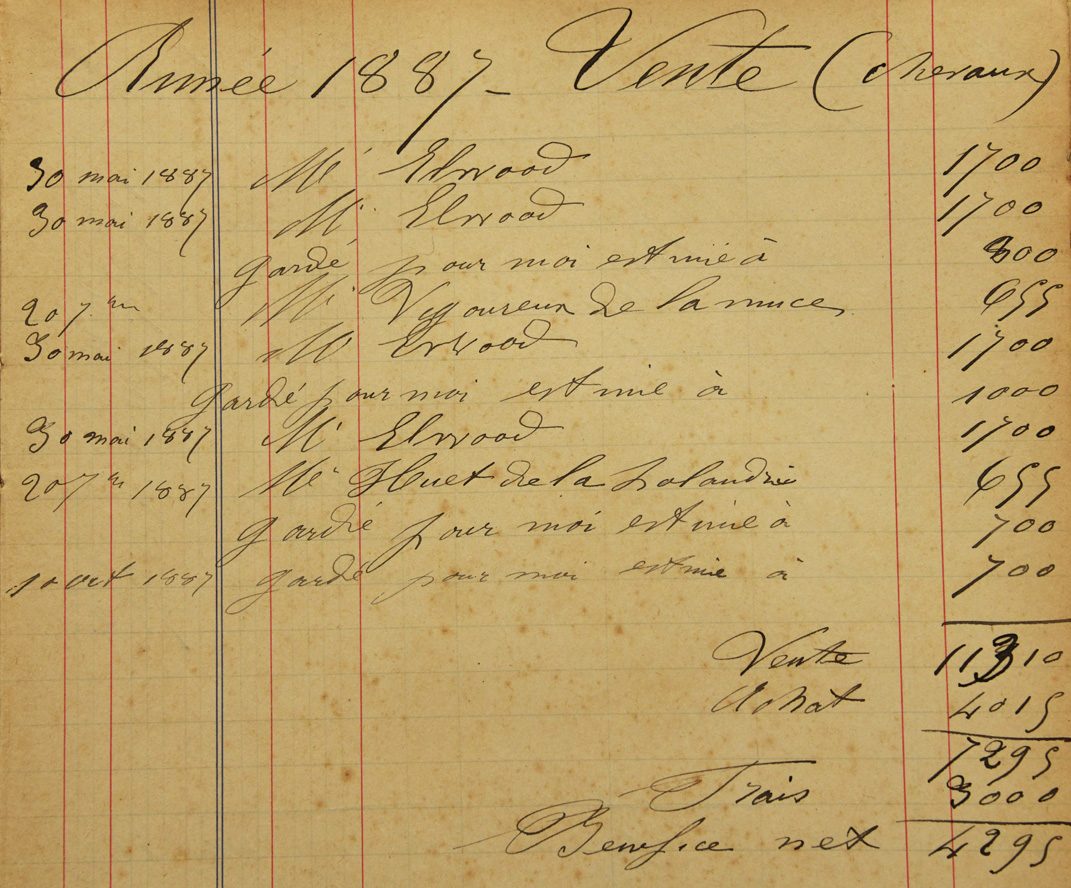 Année 1887 - Vente (chevaux)
30 mai 1887 Mr Elwood 1700
30 mai 1887 Mr Elwood 1700
gardé pour moi estimé à 800
20 7bre Mr Vigoureux de la 655
30 mai 1887 Mr Elwood 1700
gardé pour moi estimé à 1000
30 mai 1887 Mr Elwood 1700
20 7bre 1887 Mr Huet de la 655
gardé pour moi estimé à 700
10 oct 1887 gardé pour moi estimé à 700
Vente 11310
Achat 4015
7295
Frais 3000
Benefice net 4295